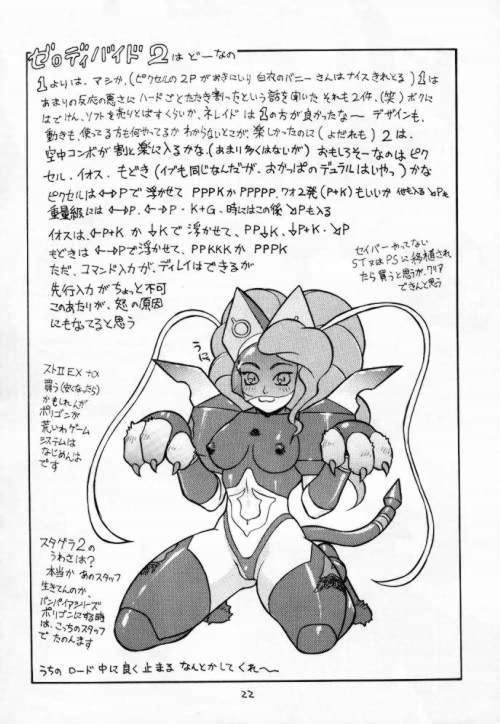 ゼロディバイド2はどーなの
1よりは、マシか、(ピクセルの2Pがおきにいり 白衣のバニーさんはナイスきれとる) 1は
あまりの反応の悪さにハードごとたたき割ったという話を聞いた それも2件、(笑) ボクに
はでけん、ソフトを売りとばすくらいか、ネレイドは1の方が良かったな〜 デザインも、
動きも、使ってる方も何やってるかわからないとこが、楽しかったのに(よだれも) 2は、
空中コンボが割と楽に入るかな、(あまり多くはないが) おもしろそーなのはピク
セル、イオス、もどき(イブも同じなんだが、おかっぱのデュラルはいやっ)かな
ピクセルは←→Pで浮かせて PPPKか PPPPP、ワオ2発(P+K)もいいか 他も入る↘Pも
重量級には ←→P、←→P・K+G、時にはこの後 ↘Pも入る
イオスは、←P+K か ↓K で浮かせて、PP↓K、↓P+K・↘P
もどきは ←→Pで浮かせて、PPKKK か PPPK
ただ、コマンド入力が、ディレイはできるが
先行入力がちょっと不可
このあたりが、怒の原因
にもなってると思う
セイバーやってない
ST又はPSに移植され
たら買うと思うが、クリア
できんと思う
うにっ
ストⅡEX+α
買う(安くなったら)
かもしれんが
ポリゴンが
荒いわゲーム
システムは
なじめんは
です
スタグラ2の
うわさは?
本当か あのスタッフ
生きてんのか、
バンパイアシリーズ
ポリゴンにする時
は、こっちのスタッフ
で たのんます
うちの ロード 中に良く止まる なんとかしてくれ〜
22